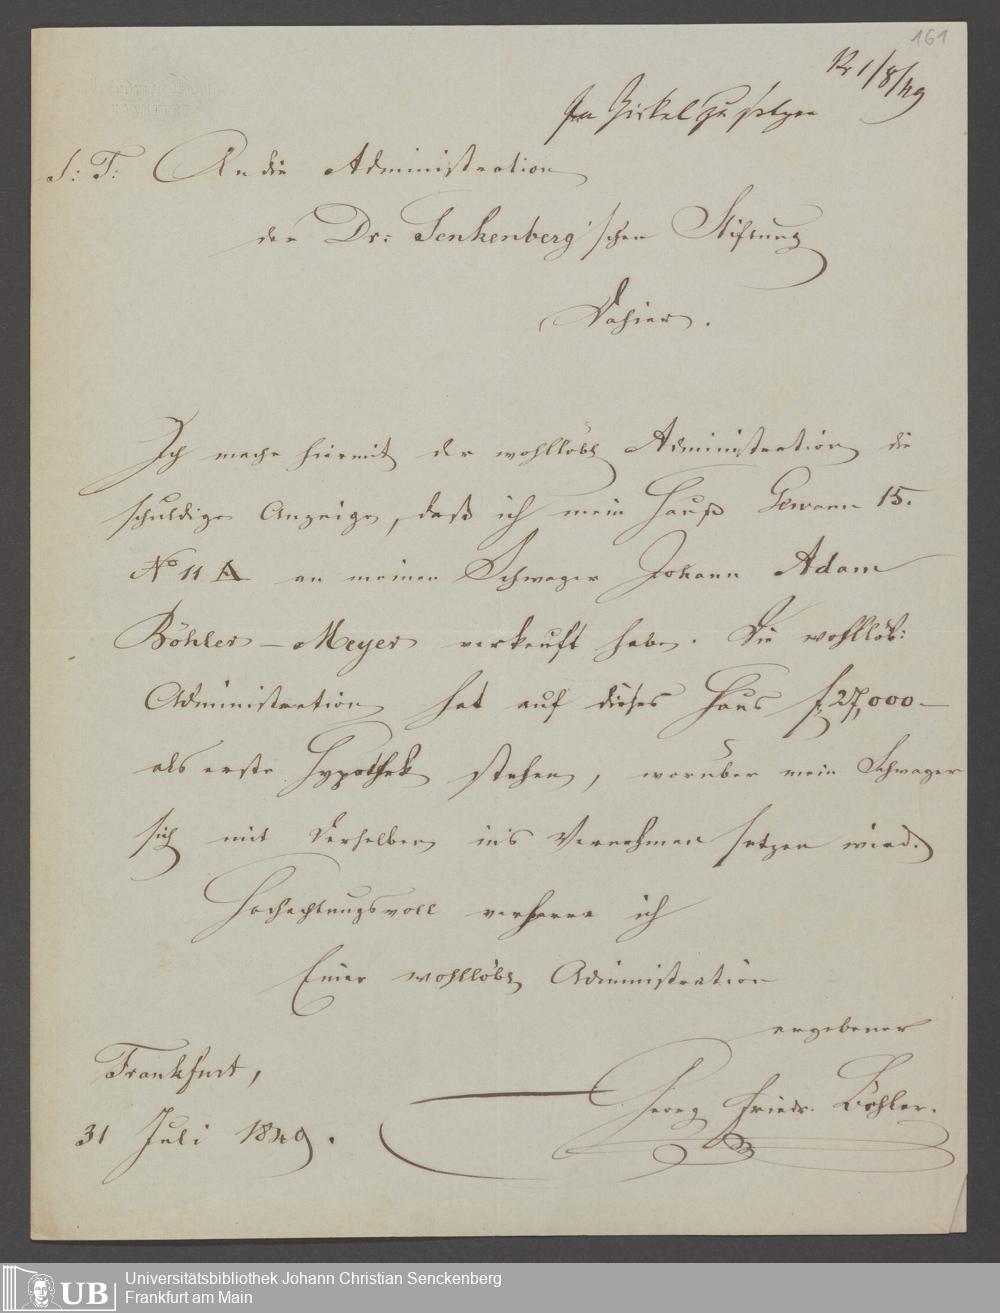 161
1/8/49
im Zirkel zu folgen
S: T: An die Administration
der Dr: Senkenberg'schen Stiftung
Dahier.
Ich mache hiermit der wohllöbl Administration die
schuldige Anzeige, daß ich mein Hauß Gewann 15.
No 11 A an meinen Schwager Johann Adam
Böhler-Meyer verkauft habe. Die wohllöb:
Administration hat auf dieses Haus f 27,000 -
als erste Hypothek stehen, worüber mein Schwager
sich mit Derselben ins Vernehmen setzen wird.
Hochachtungsvoll verharre ich
Einer wohllöbl Administration
ergebener
Georg Friedr. Böhler.
Frankfurt,
31 Juli 1849.
UB
Universitätsbibliothek Johann Christian Senckenberg
Frankfurt am Main